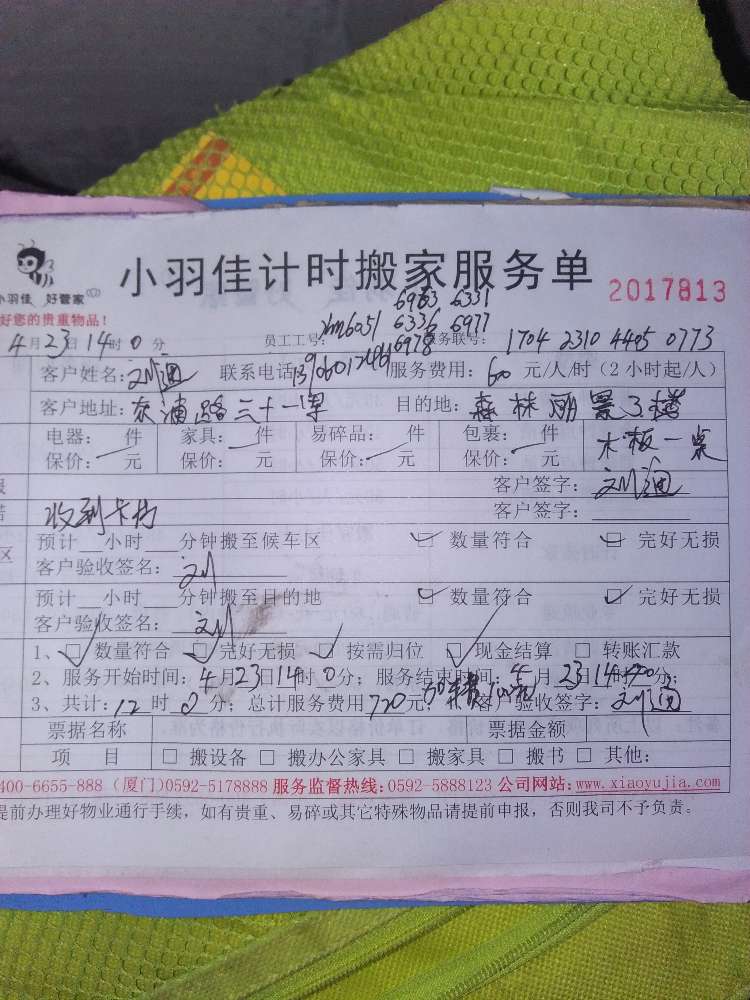 小羽佳 好管家
小羽佳计时搬家服务单
2017813
好您的贵重物品!
6963 6331
xm6051 6336 6977
6978
4月23日14时0分 员工工号: 务联号: 1704 2310 4405 0773
客户姓名: 联系电话: 服务费用: 60 元/人/时(2小时起/人)
客户地址: 灰浦路三十一号 目的地: 森林湖景3楼
电器: 件 家具: 件 易碎品: 件 包裹: 件 木板一桌
保价: 元 保价: 元 保价: 元 保价: 元
客户签字:
收到卡内
客户签字:
预计 小时 分钟搬至候车区 数量符合 完好无损
客户验收签名: 刘
预计 小时 分钟搬至目的地 数量符合 完好无损
客户验收签名: 刘
1、 数量符合 完好无损 按需归位 现金结算 转账汇款
2、服务开始时间: 4月23日14时0分; 服务结束时间: 4月23日14时 分;
3、共计: 12时0分; 总计服务费用720元, 客户验收签字:
票据名称 票据金额
项 目 搬设备 搬办公家具 搬家具 搬书 其他:
400-6655-888 (厦门)0592-5178888 服务监督热线:0592-5888123 公司网站:www.xiaoyujia.com
提前办理好物业通行手续,如有贵重、易碎或其它特殊物品请提前申报,否则我司不予负责。